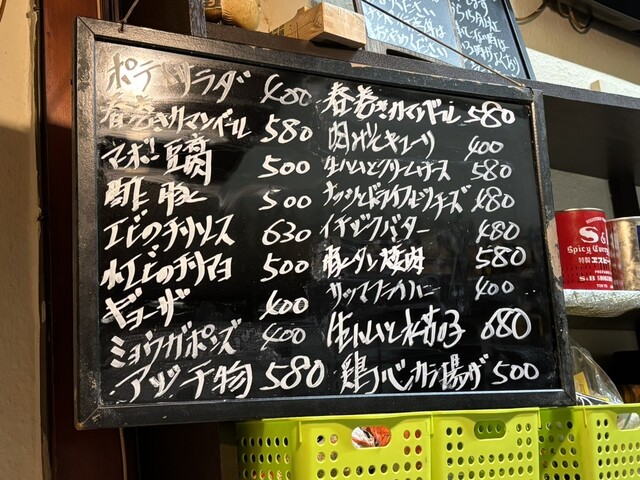 ポテトサラダ 400
春巻きカマンベール 580
マーボー豆腐 500
酢豚 500
エビのチリソース 630
小エビのチリマヨ 500
ギョーザ 400
ミョウガポンズ 400
アジ干物 580
春巻きカマンベール 580
400
生ハムとクリームチーズ 580
ナッツとドライフルーツチーズ 480
イチジクバター 480
豚タン焼肉 580
400
生ハムと水茄子 680
鶏カラ揚げ 500
S&B
Spicy Curry
特製ヱスビー
S&B